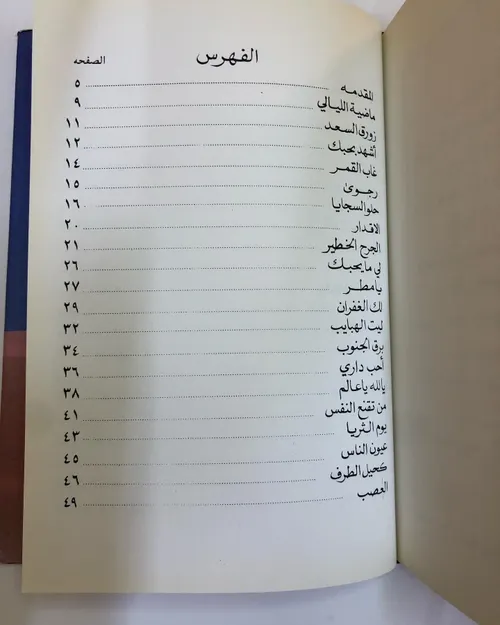 الفهرس الصفحه
المقدمه ٥
ماضية الليالي ٩
زورق السعد ١١
أشهد بحبك ١٢
غاب القمر ١٤
رجوى ١٥
حلو السجايا ١٦
الاقدار ٢٠
الجرح الخطير ٢١
لي ما يحبك ٢٦
يا مطر ٢٧
لك الغفران ٢٩
ليت الهبايب ٣٢
برق الجنوب ٣٤
أحب داري ٣٦
يالله ياعالم ٣٨
من تقنع النفس ٤١
يوم الثريا ٤٣
عيون الناس ٤٥
كحيل الطرف ٤٦
الغصب ٤٩